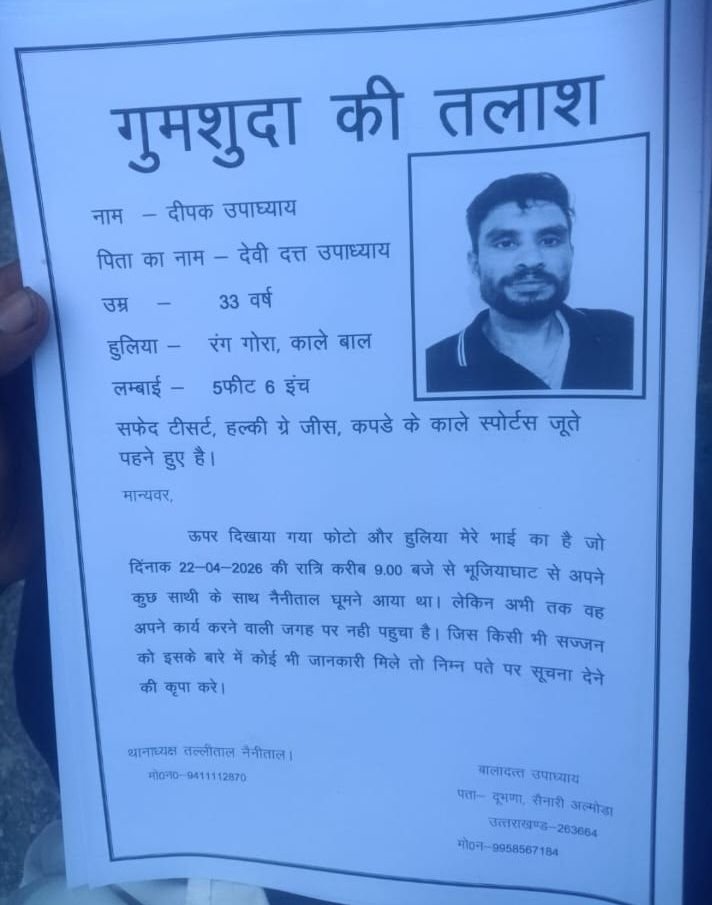 गुमशुदा की तलाश
नाम – दीपक उपाध्याय
पिता का नाम – देवी दत्त उपाध्याय
उम्र – 33 वर्ष
हुलिया – रंग गोरा, काले बाल
लम्बाई – 5फीट 6 इंच
सफेद टीसर्ट, हल्की ग्रे जीस, कपडे के काले स्पोर्टस जूते
पहने हुए है।
मान्यवर,
ऊपर दिखाया गया फोटो और हुलिया मेरे भाई का है जो
दिंनाक 22–04–2026 की रात्रि करीब 9.00 बजे से भूजियाघाट से अपने
कुछ साथी के साथ नैनीताल घूमने आया था। लेकिन अभी तक वह
अपने कार्य करने वाली जगह पर नही पहुचा है। जिस किसी भी सज्जन
को इसके बारे में कोई भी जानकारी मिले तो निम्न पते पर सूचना देने
की कृपा करे।
थानाध्यक्ष तल्लीताल नैनीताल।
मो0न0–9411112870
बालादत्त उपाध्याय
पता– दूभणा, सैनारी अल्मोड़ा
उत्तराखण्ड–263664
मो0न–9958567184